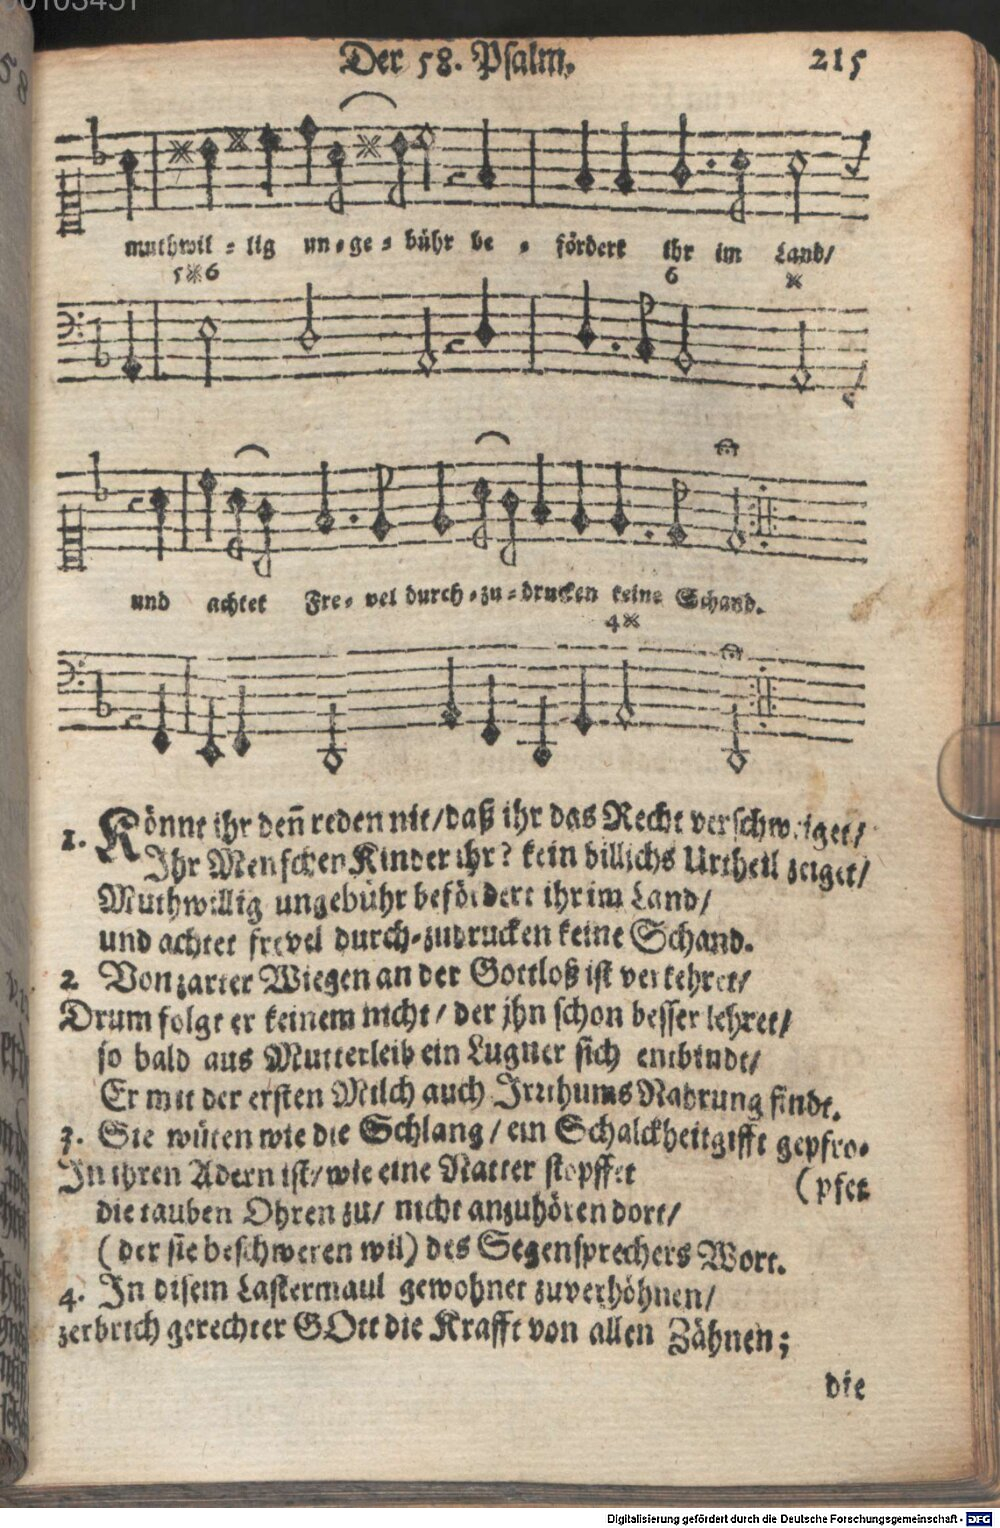 Der 58. Psalm.
215
muthwil - lig un-ge - bühr be - fördert ihr im Land/
5※6 6 ※
und achtet Fre- vel durch-zu-drucken keine Schand.
4※
1. Könnt ihr den̄ reden nit/daß ihr das Recht verschweiget/
Ihr Menschen Kinder ihr? kein billichs Urtheil zeiget/
Muthwillig ungebühr befördert ihr im Land/
und achtet frevel durch-zudrucken keine Schand.
2 Von zarter Wiegen an der Gottloß ist verkehret/
Drum folgt er keinem nicht/ der jhn schon besser lehret/
so bald aus Mutterleib ein Lugner sich entbindt/
Er mit der ersten Milch auch Irrthums Nahrung findt.
3. Sie wüten wie die Schlang/ ein Schalckheitgifft gepfro-
In ihren Adern ist/wie eine Natter stopffet (pfet
die tauben Ohren zu/ nicht anzuhören dort/
(der sie beschweren wil) des Segensprechers Wort.
4. In disem Lastermaul gewohnet zuverhöhnen/
zerbrich gerechter GOtt die Krafft von allen Zähnen;
die
Digitalisierung gefördert durch die Deutsche Forschungsgemeinschaft - DFG